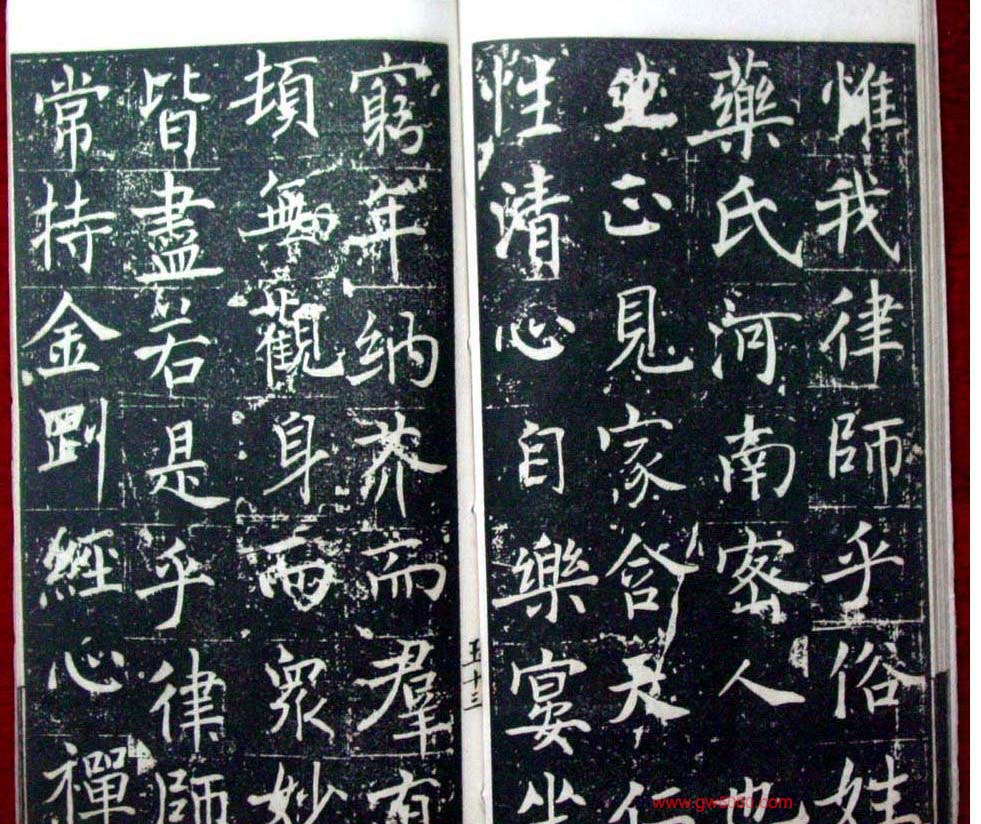 惟我律師乎俗姓
藥氏河南密人也
生正見家含天仁
性清心自樂宴坐
五十三
窮年納芥而羣有
頓無觀身而眾妙
皆盡若是乎律師
常持金剛經心禪